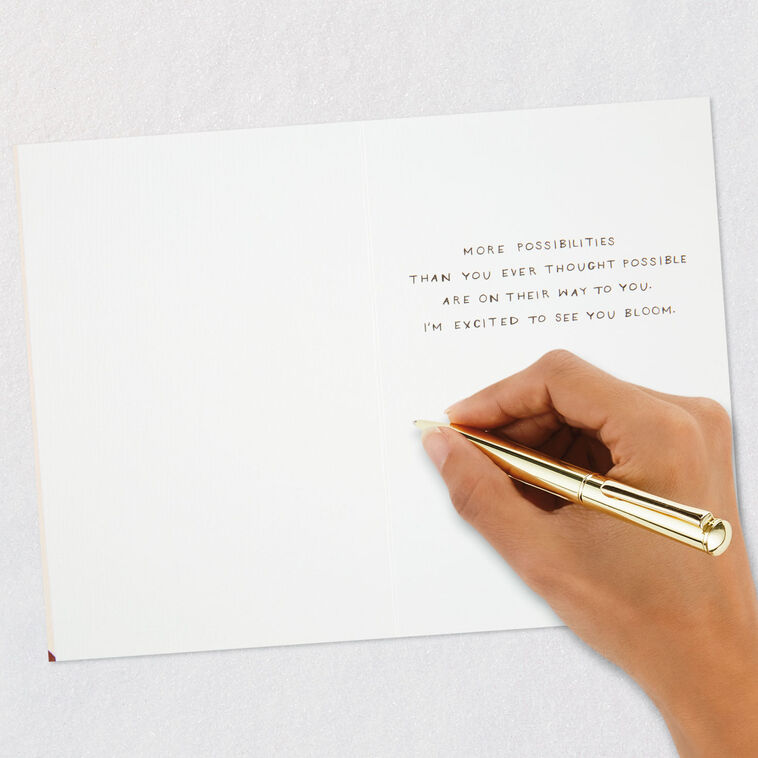 MORE POSSIBILITIES
THAN YOU EVER THOUGHT POSSIBLE
ARE ON THEIR WAY TO YOU.
I'M EXCITED TO SEE YOU BLOOM.